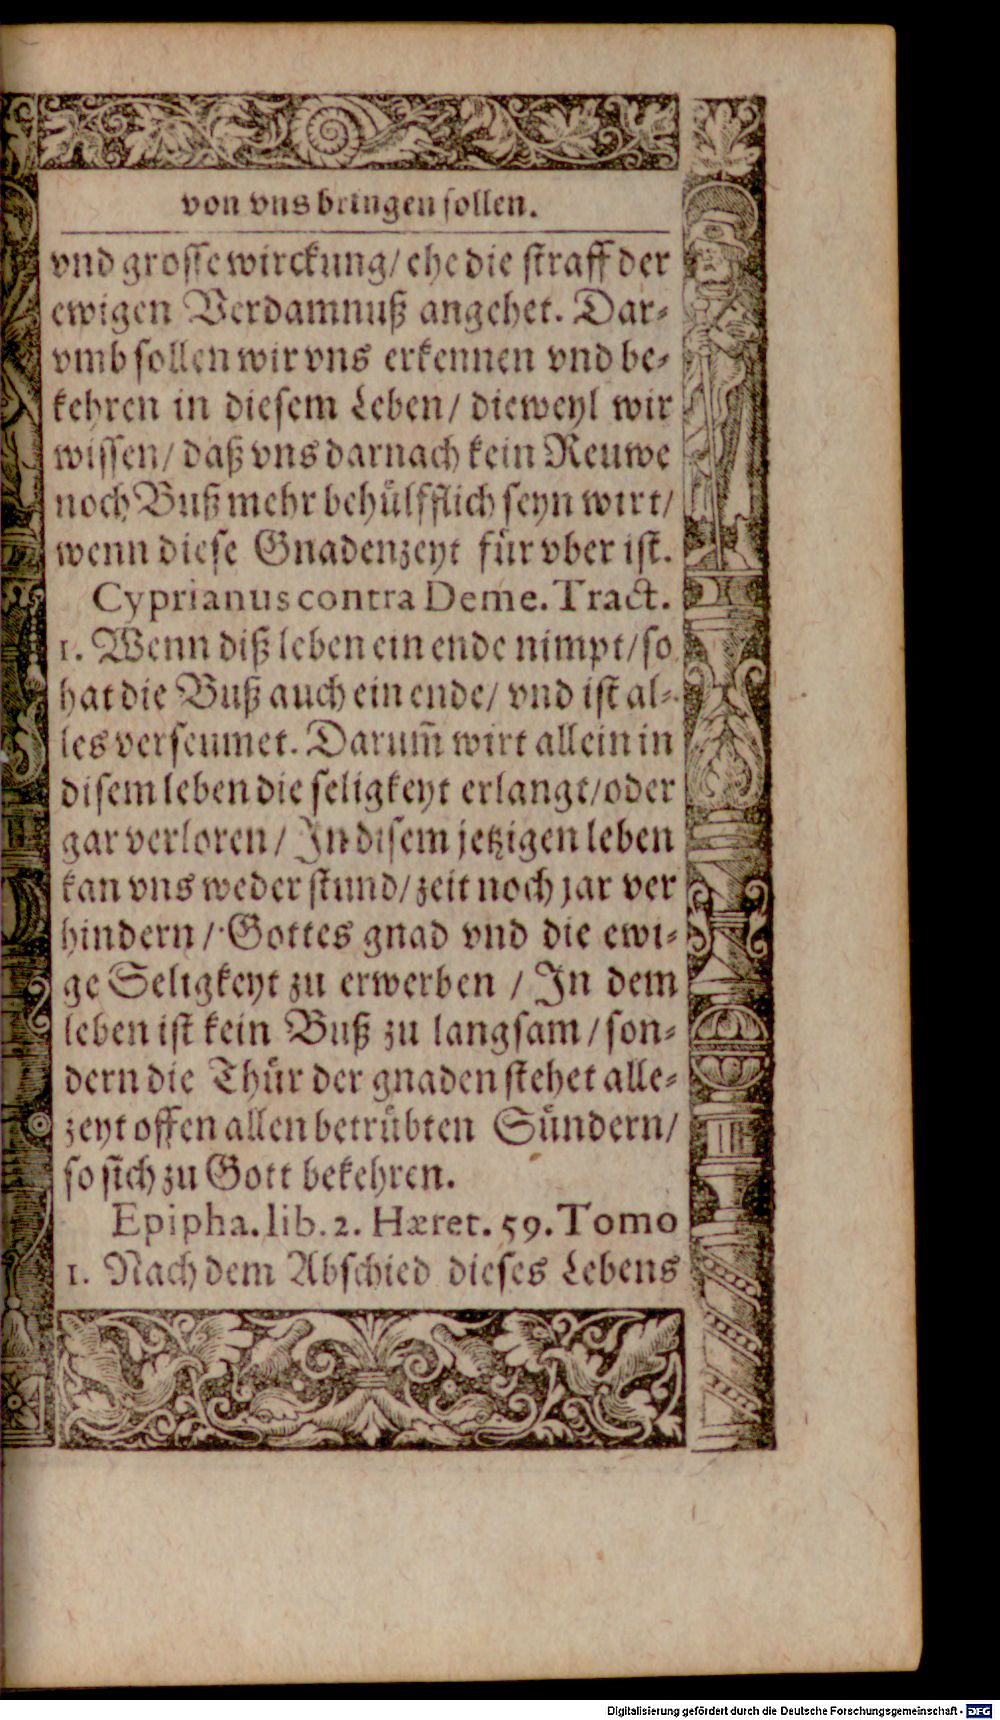 von vns bringen sollen.
vnd grosse wirckung/ ehe die straff der
ewigen Verdamnuß angehet. Dar⸗
vmb sollen wir vns erkennen vnd be⸗
kehren in diesem Leben/ dieweyl wir
wissen/ daß vns darnach kein Reuwe
noch Buß mehr behülfflich seyn wirt/
wenn diese Gnadenzeyt für vber ist.
Cyprianus contra Deme. Tract.
1. Wenn diß leben ein ende nimpt/ so
hat die Buß auch ein ende/ vnd ist al⸗
les verseumet. Darum̃ wirt allein in
disem leben die seligkeyt erlangt/ oder
gar verloren/ In disem jetzigen leben
kan vns weder stund/ zeit noch jar ver
hindern/ Gottes gnad vnd die ewi⸗
ge Seligkeyt zu erwerben / In dem
leben ist kein Buß zu langsam/ son⸗
dern die Thür der gnaden stehet alle⸗
zeyt offen allen betrübten Sündern/
so sich zu Gott bekehren.
Epipha. lib. 2. Hæret. 59. Tomo
1. Nach dem Abschied dieses Lebens
Digitalisierung gefördert durch die Deutsche Forschungsgemeinschaft - DFG